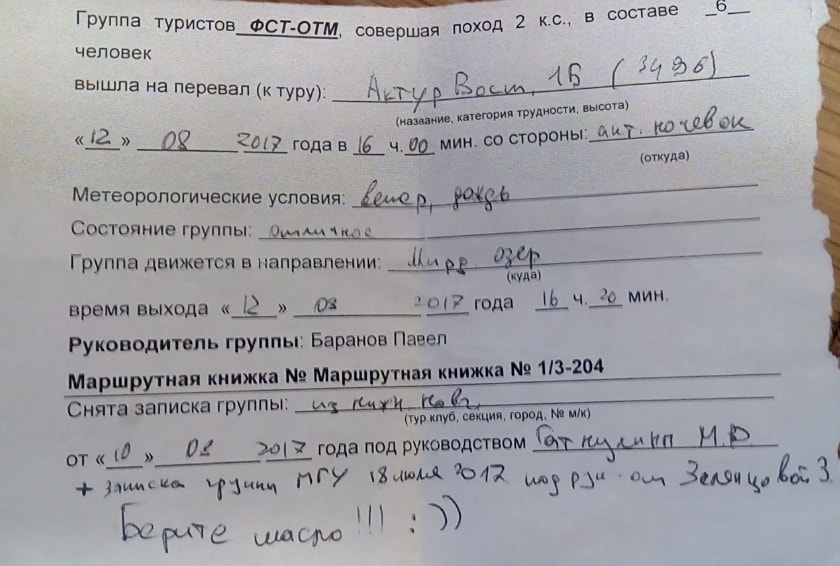 Группа туристов ФСТ-ОТМ, совершая поход 2 к.с., в составе _6__
человек
вышла на перевал (к туру): Актур Вост, 1Б (3496)
(название, категория трудности, высота)
«12» 08 2017 года в 16 ч. 00 мин. со стороны: ночевок
(откуда)
Метеорологические условия: ветер, дождь
Состояние группы: отличное
Группа движется в направлении: озер
(куда)
время выхода «12» 08 2017 года 16 ч. 20 мин.
Руководитель группы: Баранов Павел
Маршрутная книжка № Маршрутная книжка № 1/3-204
Снята записка группы: из нижн. новг.
(тур.клуб, секция, город, № м/к)
от «10» 08 2017 года под руководством М.Р.
+ записка группы МГУ 18 июля 2017 под рук-ом Зеленцовой З.
Берите масло!!! :))